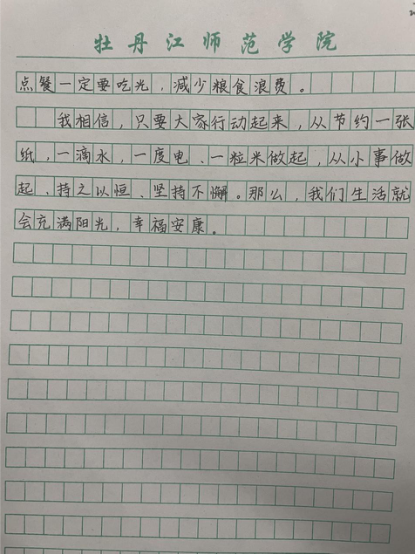 牡丹江师范学院
点餐一定要吃光，减少粮食浪费。
我相信，只要大家行动起来，从节约一张
纸，一滴水，一度电、一粒米做起，从小事做
起、持之以恒、坚持不懈。那么，我们生活就
会充满阳光，幸福安康。